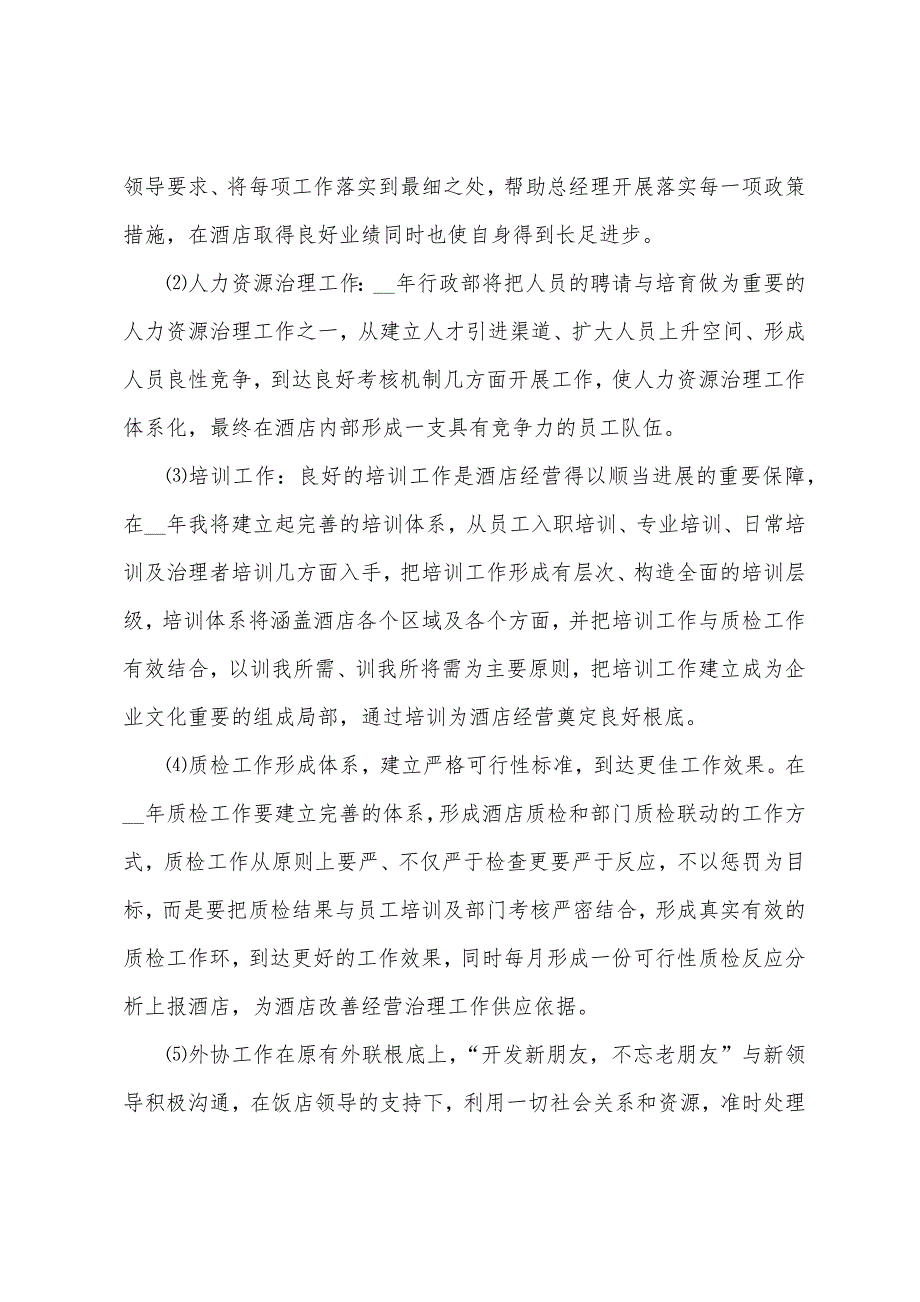 领导要求、将每项工作落实到最细之处，帮助总经理开展落实每一项政策
措施，在酒店取得良好业绩同时也使自身得到长足进步。
⑵人力资源治理工作：__年行政部将把人员的聘请与培育做为重要的
人力资源治理工作之一，从建立人才引进渠道、扩大人员上升空间、形成
人员良性竞争，到达良好考核机制几方面开展工作，使人力资源治理工作
体系化，最终在酒店内部形成一支具有竞争力的员工队伍。
⑶培训工作：良好的培训工作是酒店经营得以顺当进展的重要保障，
在__年我将建立起完善的培训体系，从员工入职培训、专业培训、日常培
训及治理者培训几方面入手，把培训工作形成有层次、构造全面的培训层
级，培训体系将涵盖酒店各个区域及各个方面，并把培训工作与质检工作
有效结合，以训我所需、训我所将需为主要原则，把培训工作建立成为企
业文化重要的组成局部，通过培训为酒店经营奠定良好根底。
⑷质检工作形成体系，建立严格可行性标准，到达更佳工作效果。在
__年质检工作要建立完善的体系，形成酒店质检和部门质检联动的工作方
式，质检工作从原则上要严、不仅严于检查更要严于反应，不以惩罚为目
标，而是要把质检结果与员工培训及部门考核严密结合，形成真实有效的
质检工作环，到达更好的工作效果，同时每月形成一份可行性质检反应分
析上报酒店，为酒店改善经营治理工作供应依据。
⑸外协工作在原有外联根底上，“开发新朋友，不忘老朋友”与新领
导积极沟通，在饭店领导的支持下，利用一切社会关系和资源，准时处理